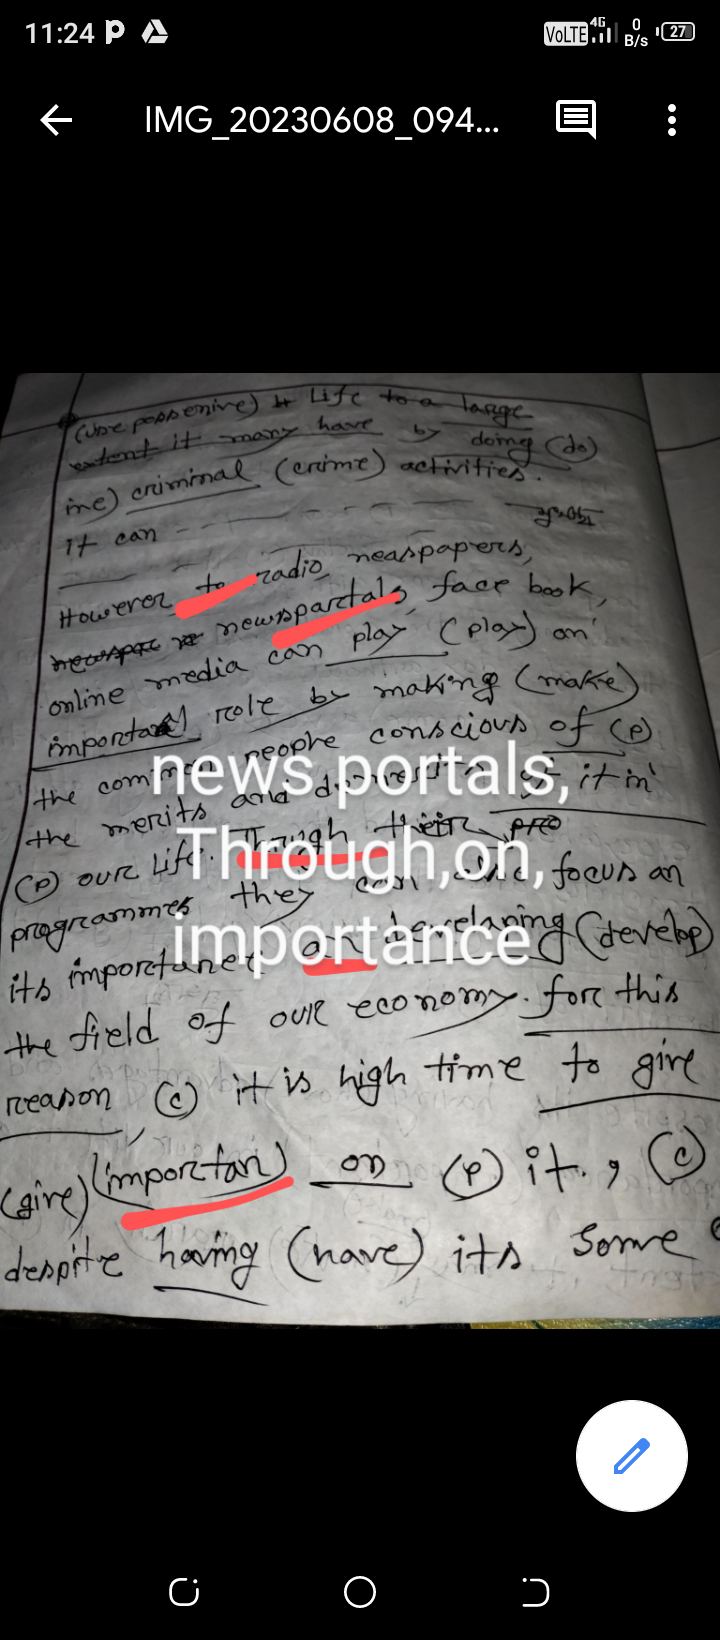 11:24
VoLTE 4G 0 B/s 27
IMG_20230608_094...
(use possenive) Life to a large
extent it many have by doing (do)
ine) criminal (crime) activities.
it can
However to radio, neaspapers,
newspartals, face book,
online media can play (play) an
important role by making (make)
the common people conscious of (P)
the merits and of it in
(P) our life. Through their pro
programmes they can focus on
its importance an develaping (develop)
the field of our economy. for this
reason (c) it is high time to give
(give) (importan) on (P) it., (c)
despite having (have) its some
news portals,
Through,on,
importance